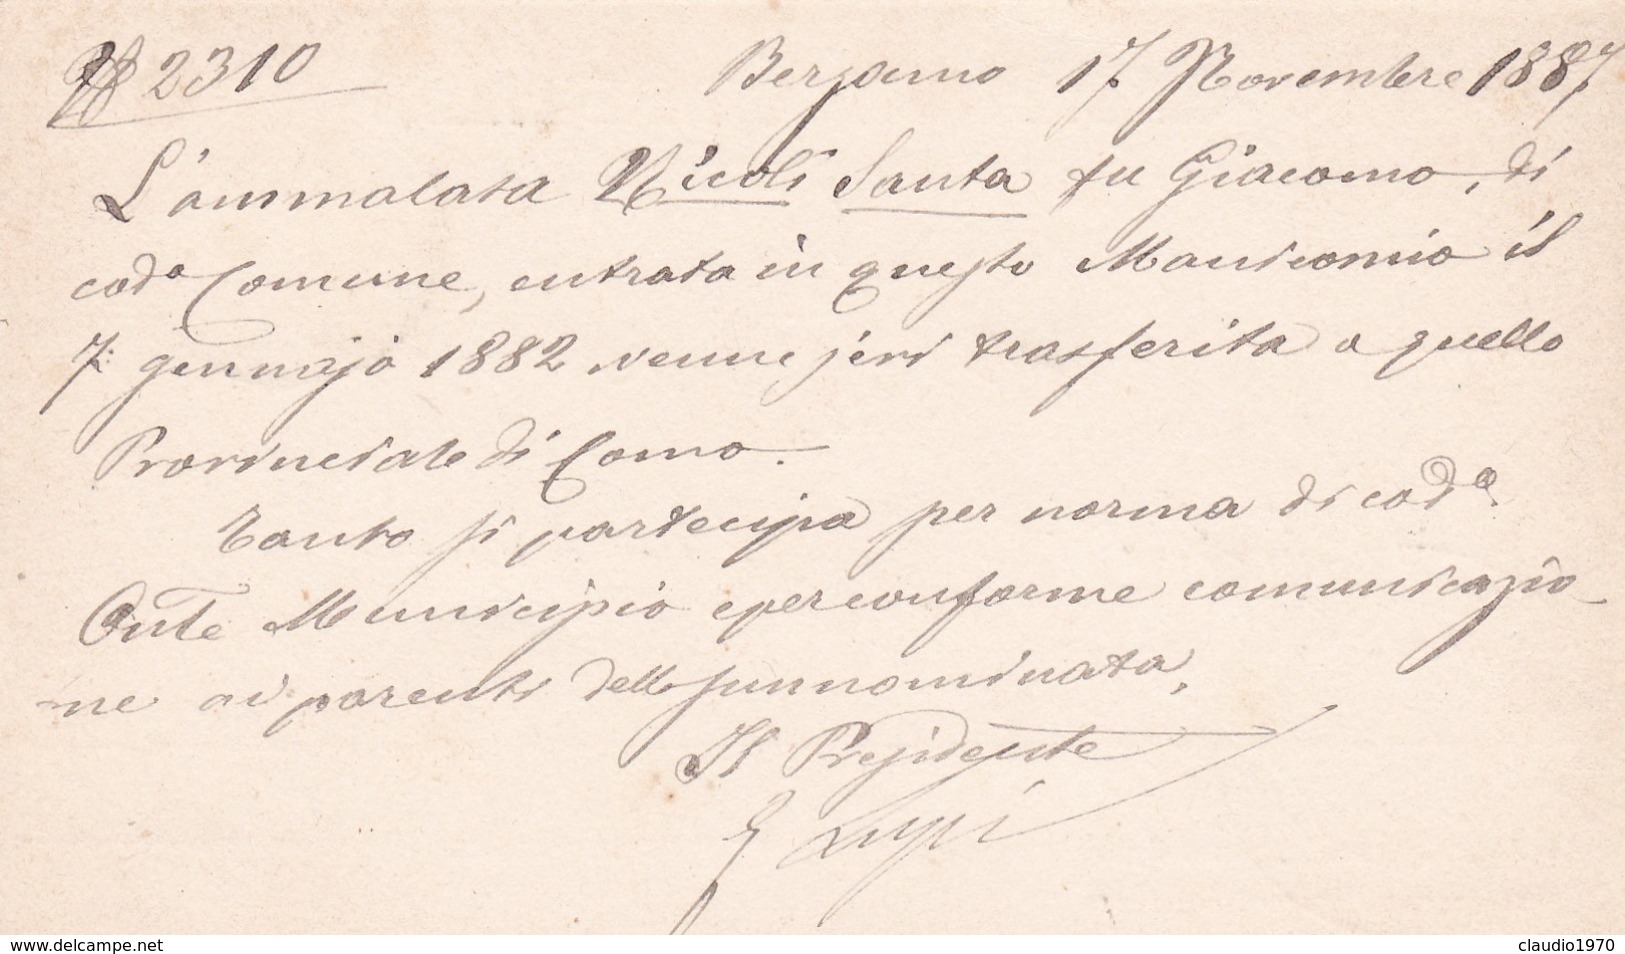 N 2310 Bergamo 17 Novembre 1887
L'ammalata Nicoli Santa fu Giacomo, di
cod.a Comune, entrata in questo Manicomio il
7 gennajo 1882 venne jeri trasferita a quello
Provinciale di Como.
Tanto si partecipa per norma di cod.o
On.le Municipio e per conforme comunicazio-
ne ai parenti della sunnominata.
Il Presidente
G Lupi
www.delcampe.net claudio1970